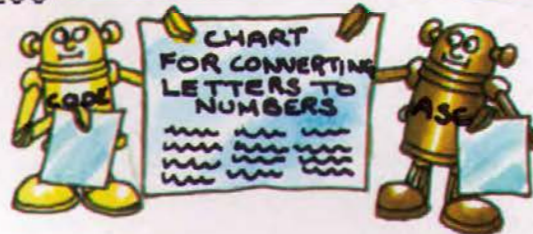 CHART
FOR CONVERTING
LETTERS TO
NUMBERS
CODE
ASC